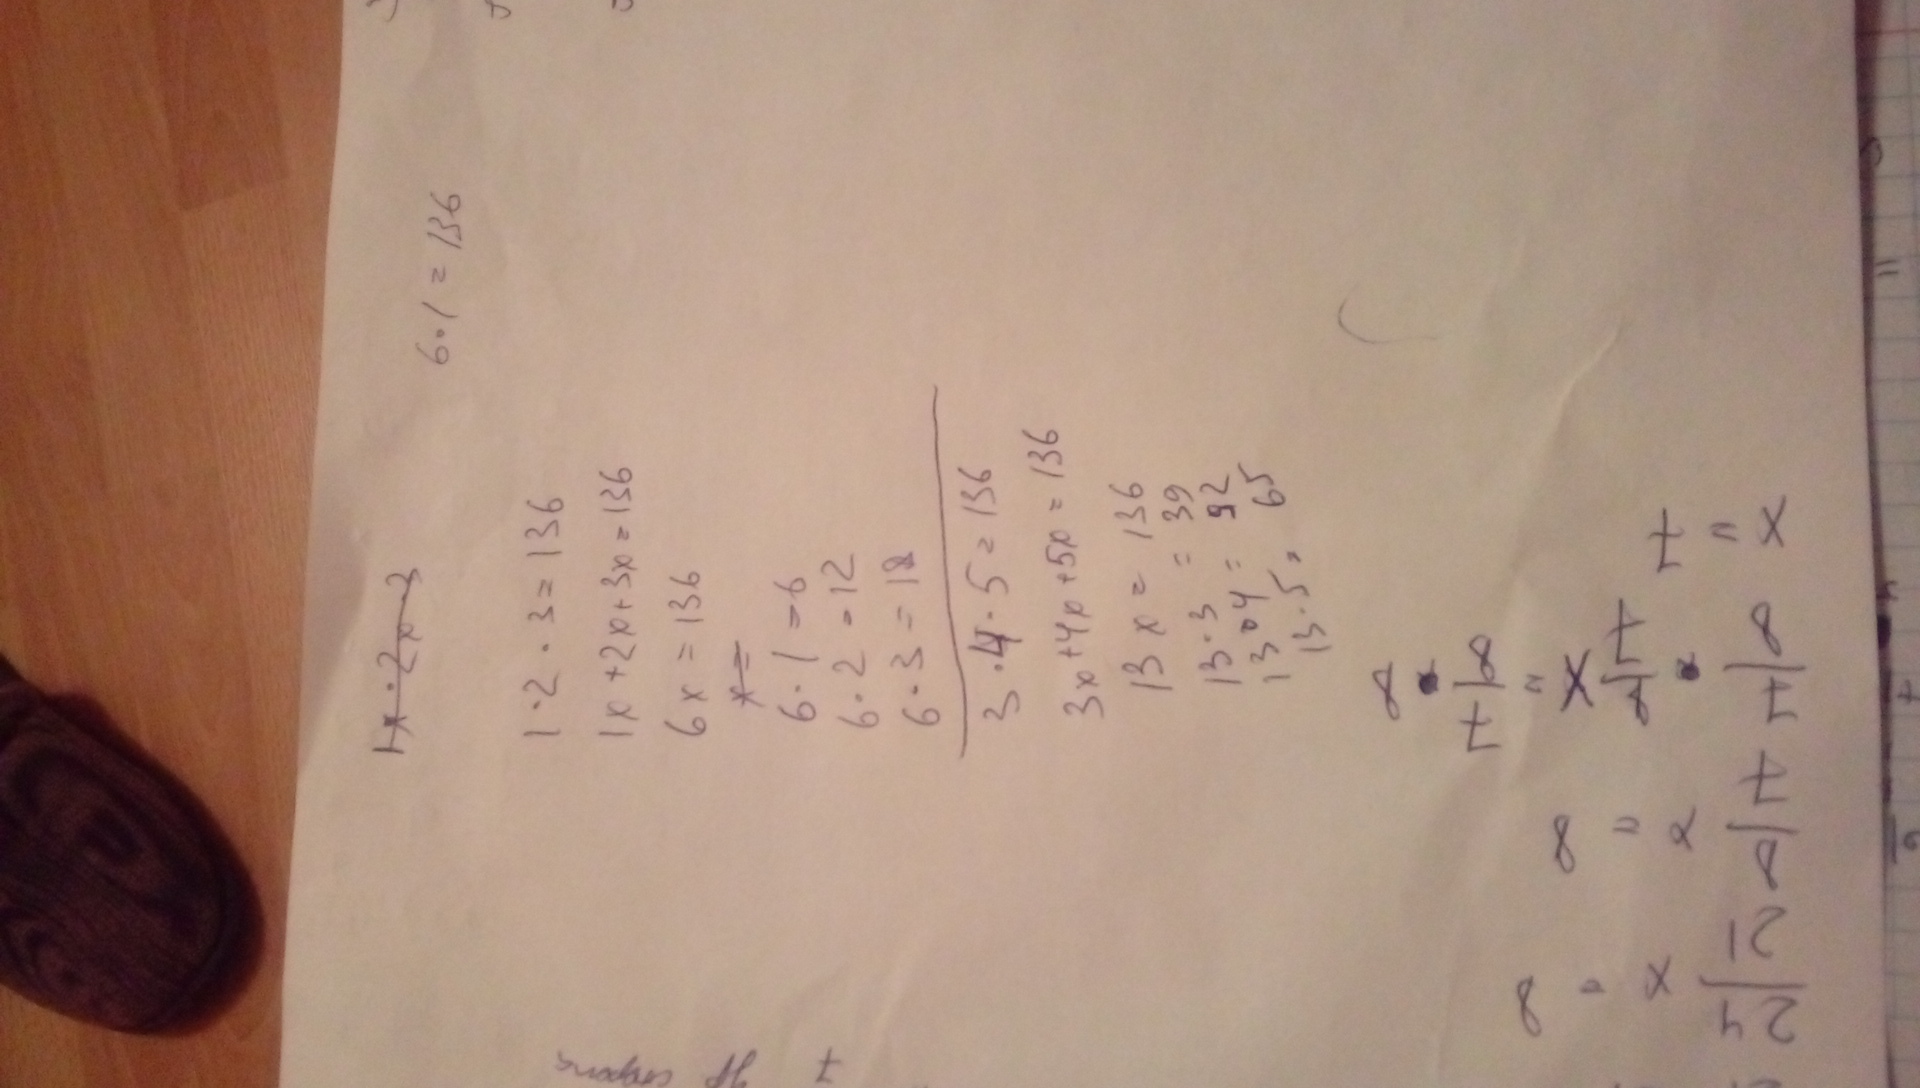 1x · 2x · 3
6·1=136
1·2·3=136
1x+2x+3x=136
6x=136
x=
6·1=6
6·2=12
6·3=18
3·4·5=136
3x+4x+5x=136
13x=136
13·3=39
13·4=52
13·5=65
24/21 x = 8
8/7 x = 8
x = 8 · 7/8
8/7 · 7/8 x = 8 · 7/8
x = 7